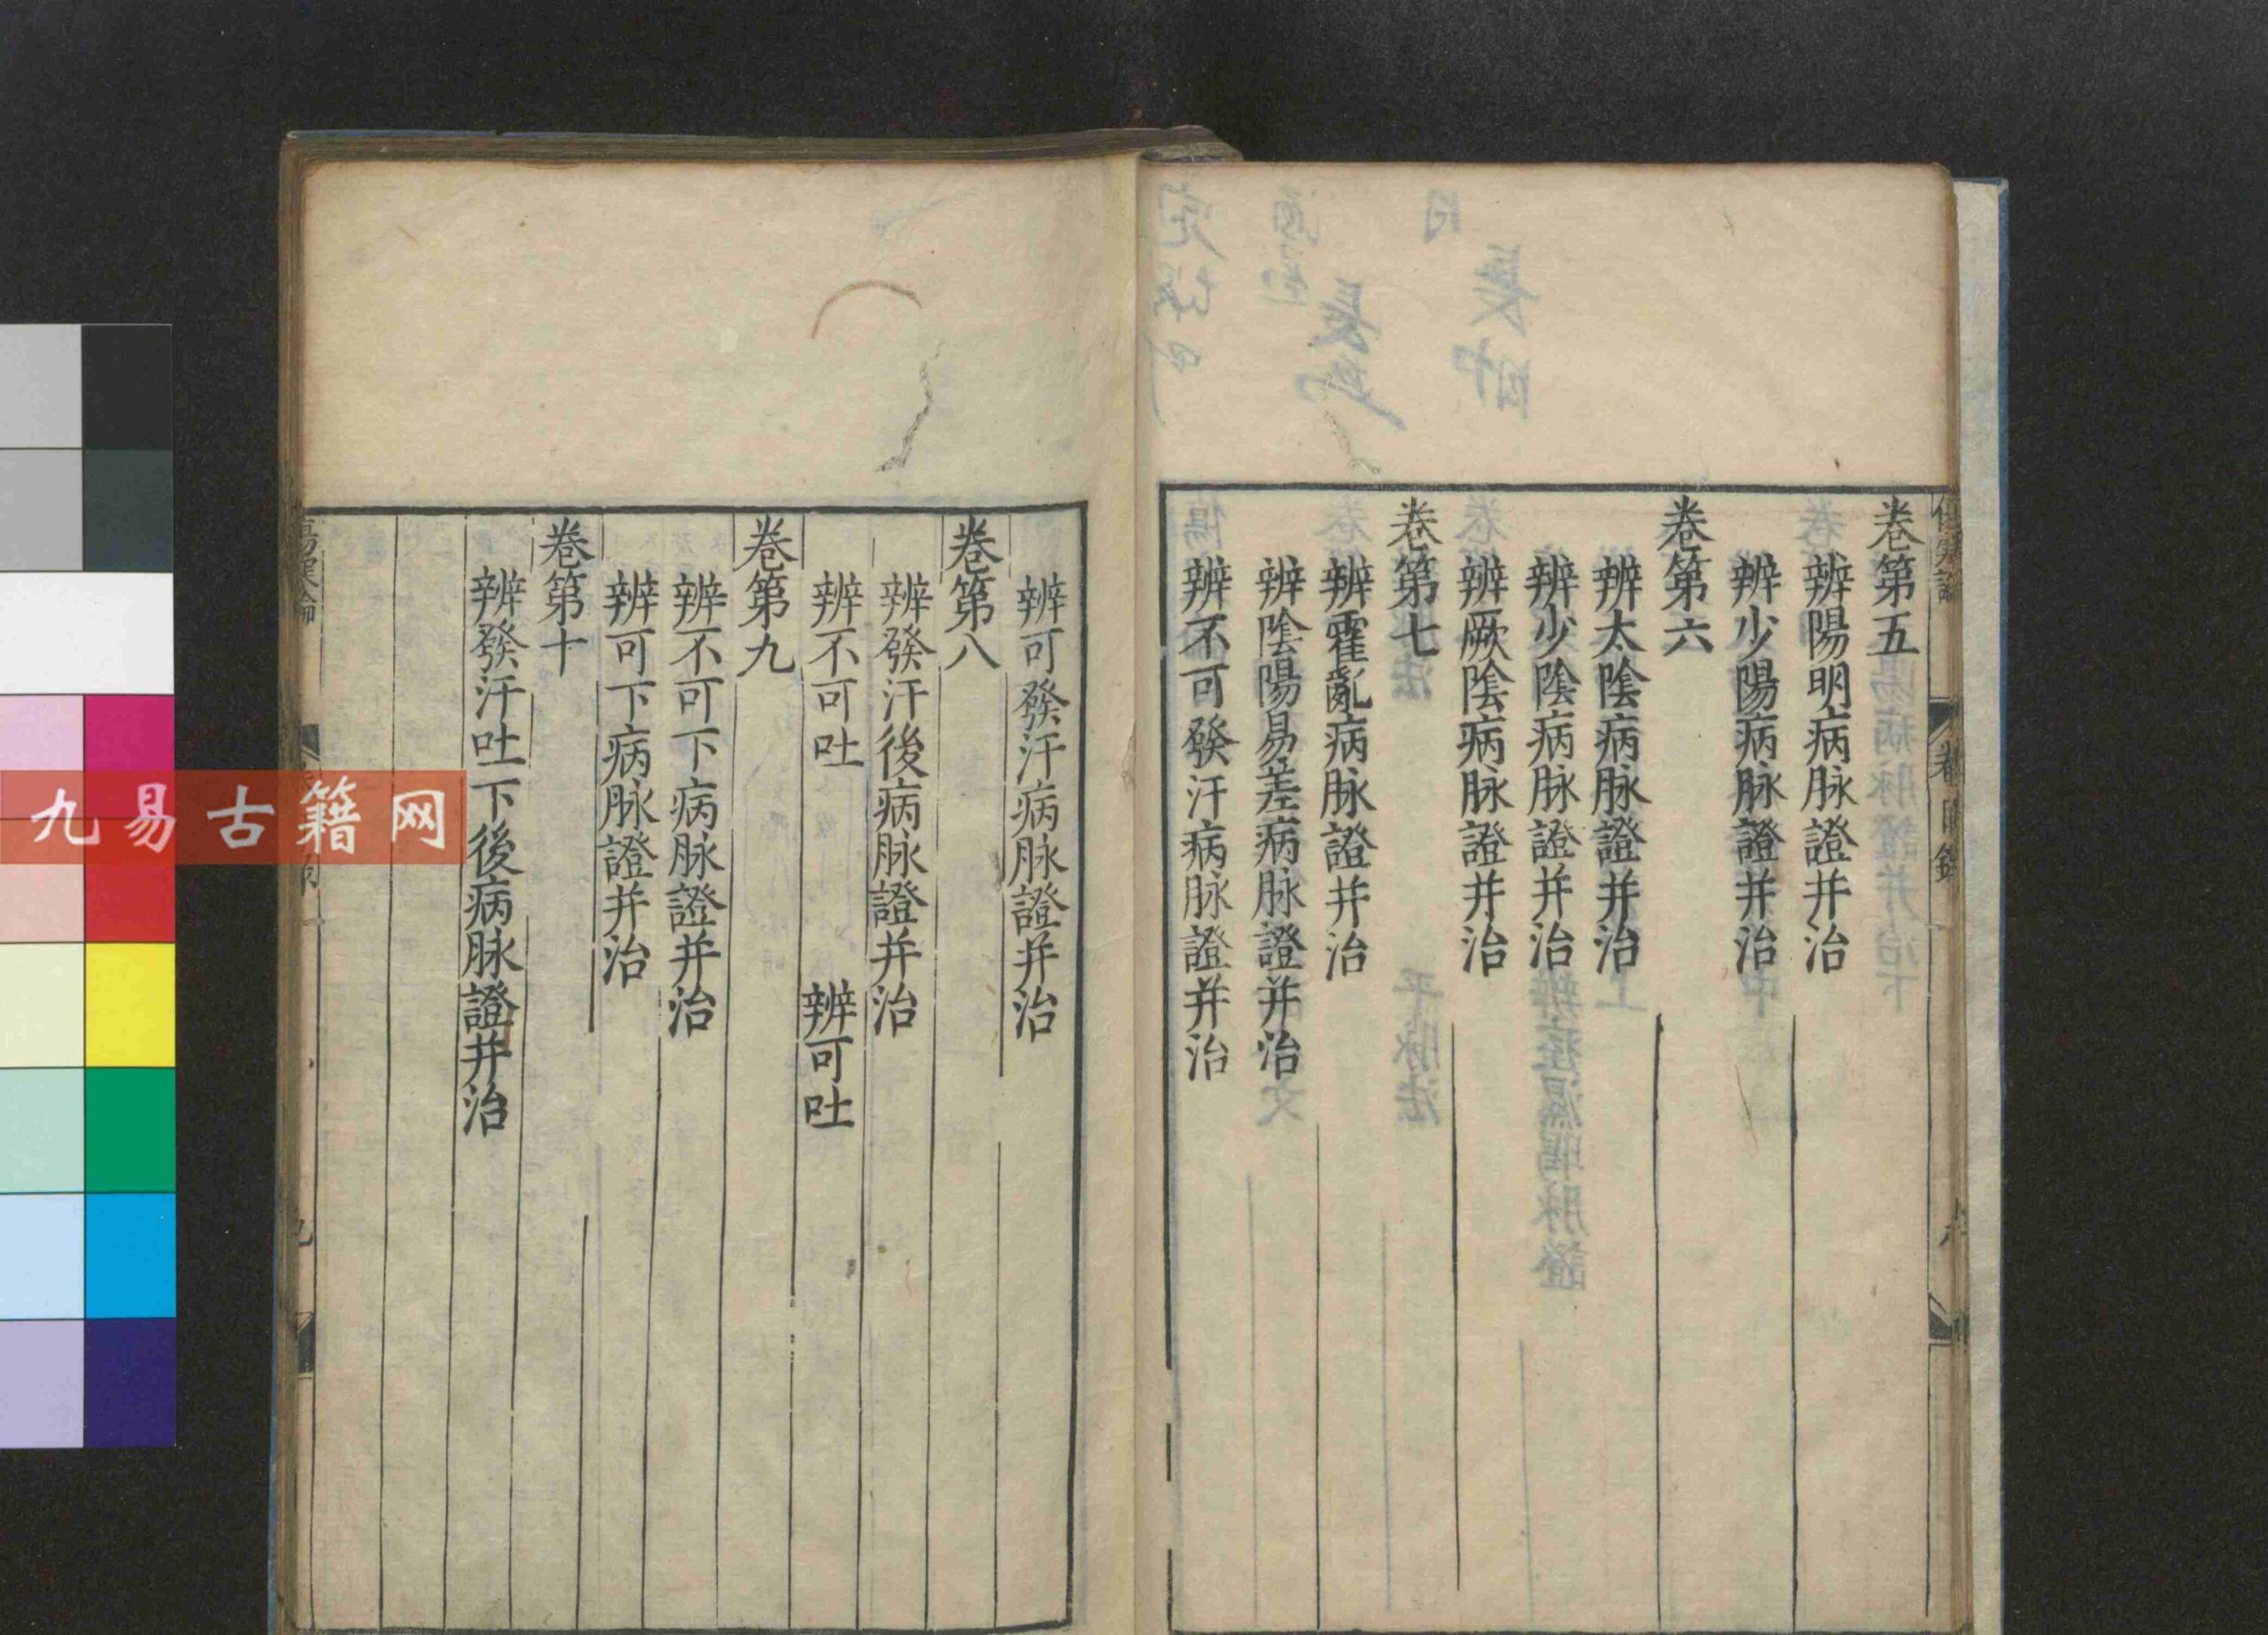 卷第五
辨陽明病脉證并治
辨少陽病脉證并治
卷第六
辨太陰病脉證并治
辨少陰病脉證并治
辨厥陰病脉證并治
卷第七
辨霍亂病脉證并治
辨陰陽易差病脉證并治
辨不可發汗病脉證并治
辨可發汗病脉證并治
卷第八
辨發汗後病脉證并治
辨不可吐 辨可吐
卷第九
辨不可下病脉證并治
辨可下病脉證并治
卷第十
辨發汗吐下後病脉證并治
九易古籍网